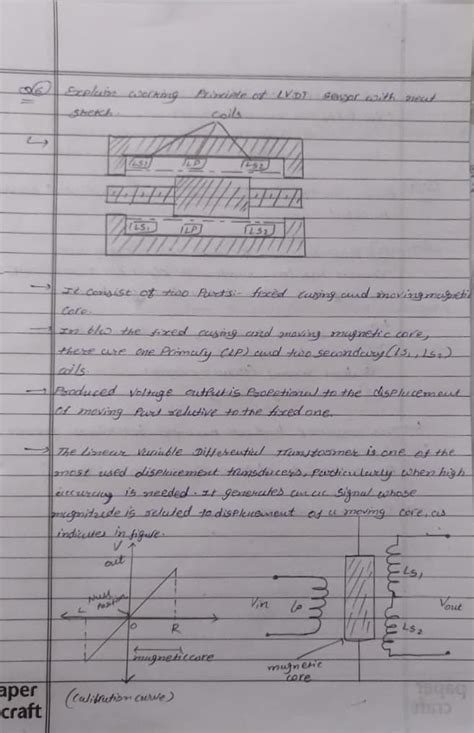 Q6 Explain working Principle of LVDT sensor with neat
sketch.
coils
LS1 LP LS2
LS1 LP LS2
→ It consist of two Parts:- fixed casing and moving magnetic
core.
→ In b/w the fixed casing and moving magnetic core,
there are one Primary (LP) and two secondary (LS1, LS2)
coils.
→ Produced voltage output is Propotional to the displacement
of moving Part relative to the fixed one.
→ The Linear Variable Differential Transformer is one of the
most used displacement transducers, Particularly when high
accuracy is needed. It generates an ac signal whose
magnitude is related to displacement of a moving core, as
indicates in figure.
V
out
Null
Position
L O R
magnetic core
(calibration curve)
Vin Lp
magnetic
core
LS1
LS2
Vout
aper
craft
paper
craft